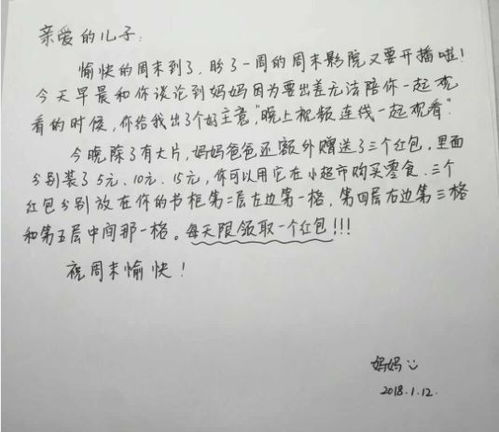 亲爱的儿子：
愉快的周末到了，盼了一周的周末影院又要开播啦！
今天早晨和你谈论到妈妈因为要出差无法陪你一起观
看的时候，你给我出了个好主意，"晚上视频连线一起观看"。
今晚除了有大片，妈妈爸爸还额外赠送了三个红包，里面
分别装了5元、10元、15元，你可以用它在小超市购买零食。三个
红包分别放在你的书柜第二层左边第一格，第四层右边第三格
和第五层中间那一格。每天限领取一个红包!!!
祝周末愉快！
妈妈
2018.1.12.